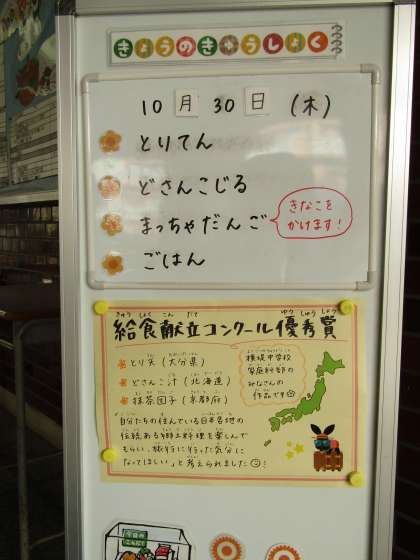 きょうのきゅうしょく
10月30日(木)
とりてん
どさんこじる
まっちゃだんご
きなこを
かけます!
ごはん
きゅうしょくこんだて ゆうしゅうしょう
給食献立コンクール優秀賞
とり天(大分県)
どさんこ汁(北海道)
抹茶団子(京都府)
家庭科部の
みなさんの
作品です
自分たちの住んでいる日本各地の
伝統ある郷土料理を楽しんで
もらい、旅行に行った気分に
なってほしい」と考えられました!